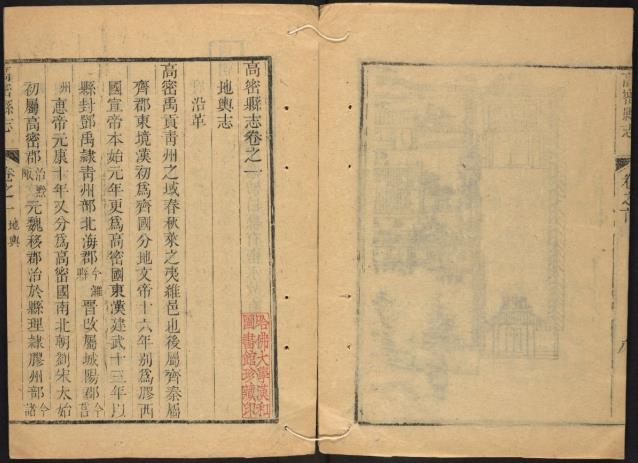 高密縣志
卷之首
八
高密縣志卷之一
地輿志
沿革
高密禹貢青州之域春秋萊之夷維邑也後屬齊秦屬
齊郡東境漢初爲齊國分地文帝十六年别爲膠西
國宣帝本始元年更爲高密國東漢建武十三年以
縣封鄧禹隷青州部北海郡今濰縣晋改屬城陽郡今莒
州惠帝元康十年又分爲高密國南北朝劉宋太始
初屬高密郡治黔陬元魏移郡治於縣理隷膠州部今諸
高密縣志
卷之一
地輿
哈佛大學漢和
圖書館珍藏印